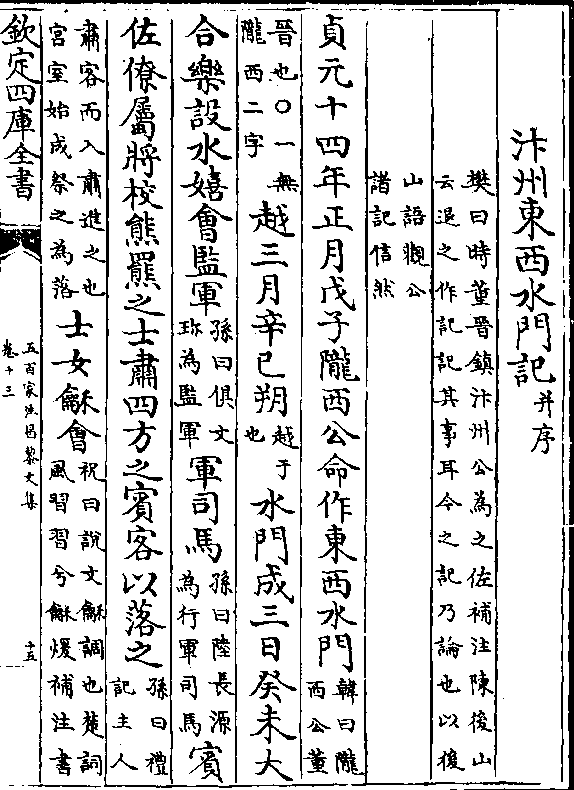 汴州東西水門記并序
樊曰時董晉鎮汴州公為之佐補注陳後山
云退之作記記其事耳今之記乃論也以後
山語觀公
諸記信然
貞元十四年正月戊子隴西公命作東西水門韓曰隴西公董
晉也〇一無隴西二字越三月辛巳朔越于也水門成三日癸未大
合樂設水嬉會監軍孫曰俱文珎為監軍軍司馬孫曰陸長源為行軍司馬賓
佐僚屬將校熊羆之士肅四方之賓客以落之孫曰禮記主人
肅客而入肅進之也宮室始成祭之為落士女龢會祝曰說文龢調也楚詞風習習兮龢煖補注書
欽定四庫全書
五百家注昌黎文集
卷十三
十五